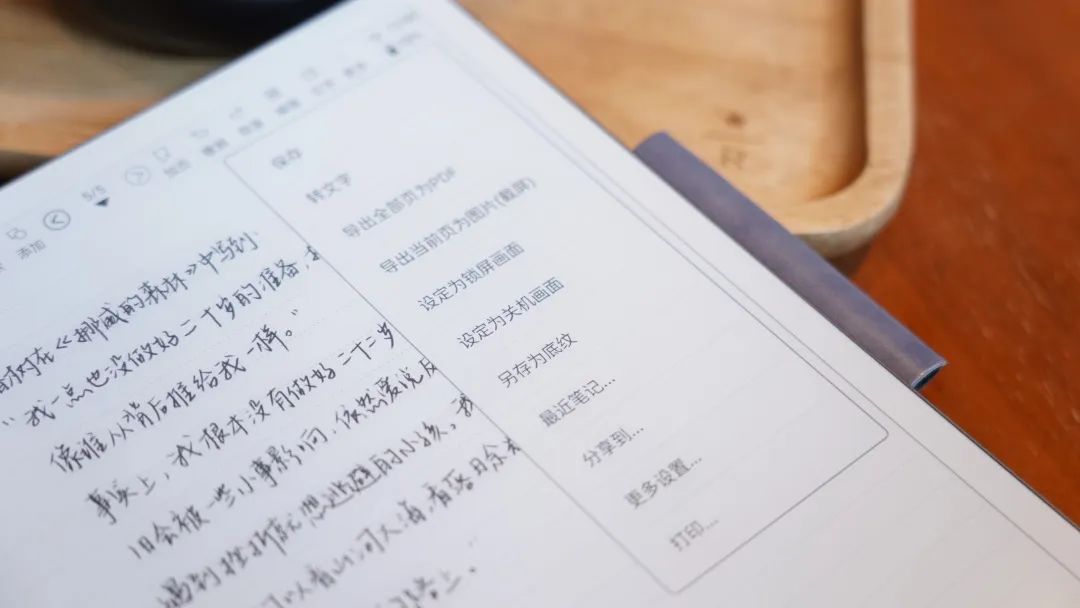 5/5
添加
保存
转文字
导出全部页为PDF
导出当前页为图片(截屏)
设定为锁屏画面
设定为关机画面
另存为底纹
最近笔记...
分享到...
更多设置...
打印...
树在《挪威的森林》中写到
“我一点也没做好二十岁的准备,
像谁从背后推给我一样。”
事实上,我根本没有做好二十二岁
旧会被一些小事影响,依然爱说反
遇到挫折就想逃避的小孩。我
可以看山河人海,看落日余
路上。